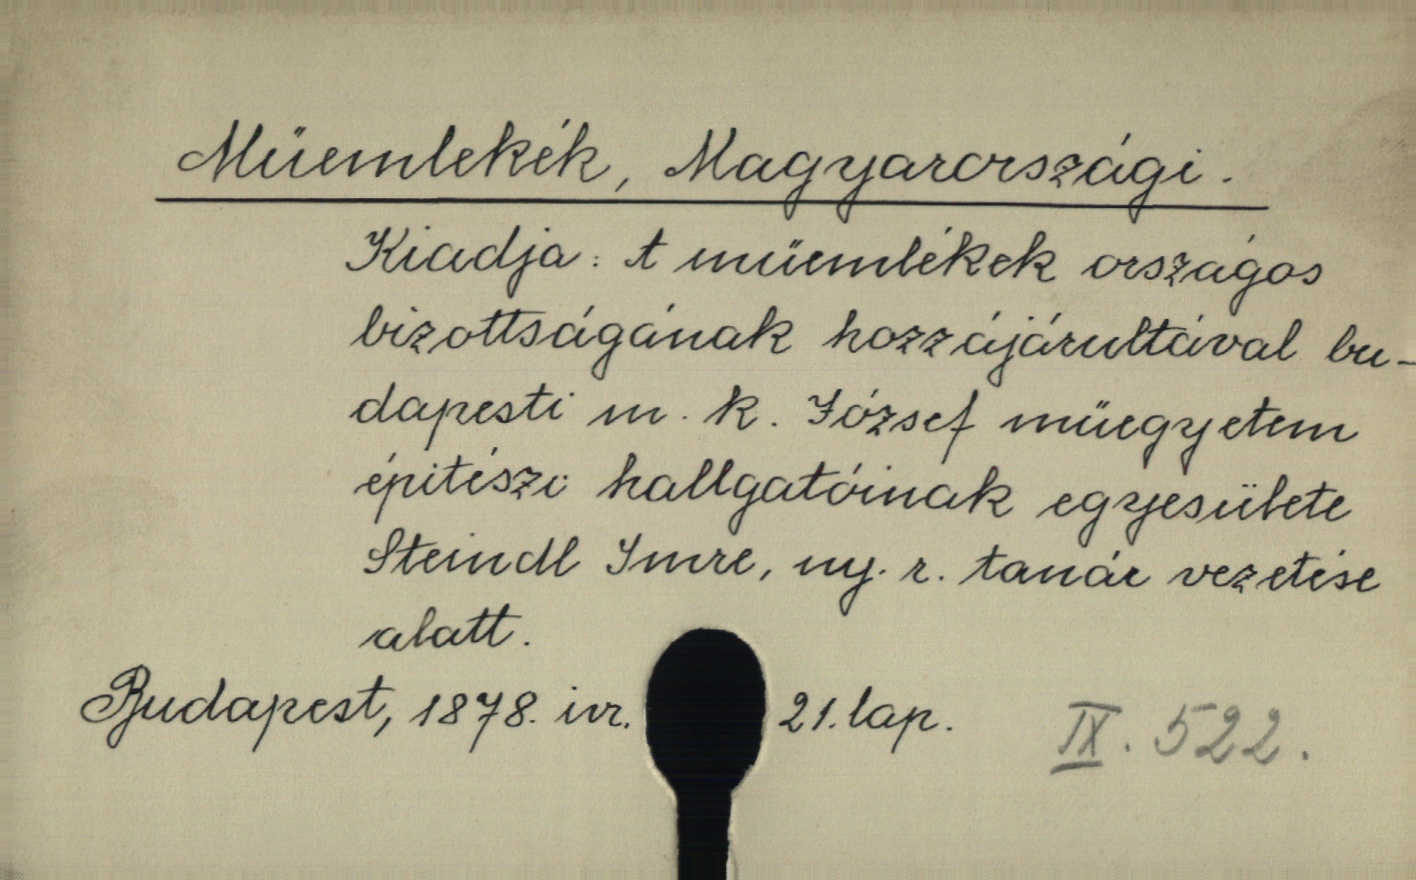 Müemlekék, Magyarországi.
Kiadja: A müemlékek országos
bizottságának hozzájárultával bu-
dapesti m. k. József müegyetem
épitészi hallgatóinak egyesülete
Steindl Imre, ny. r. tanár vezetése
alatt.
Budapest, 1878. ivr. 21. lap. IX. 522.